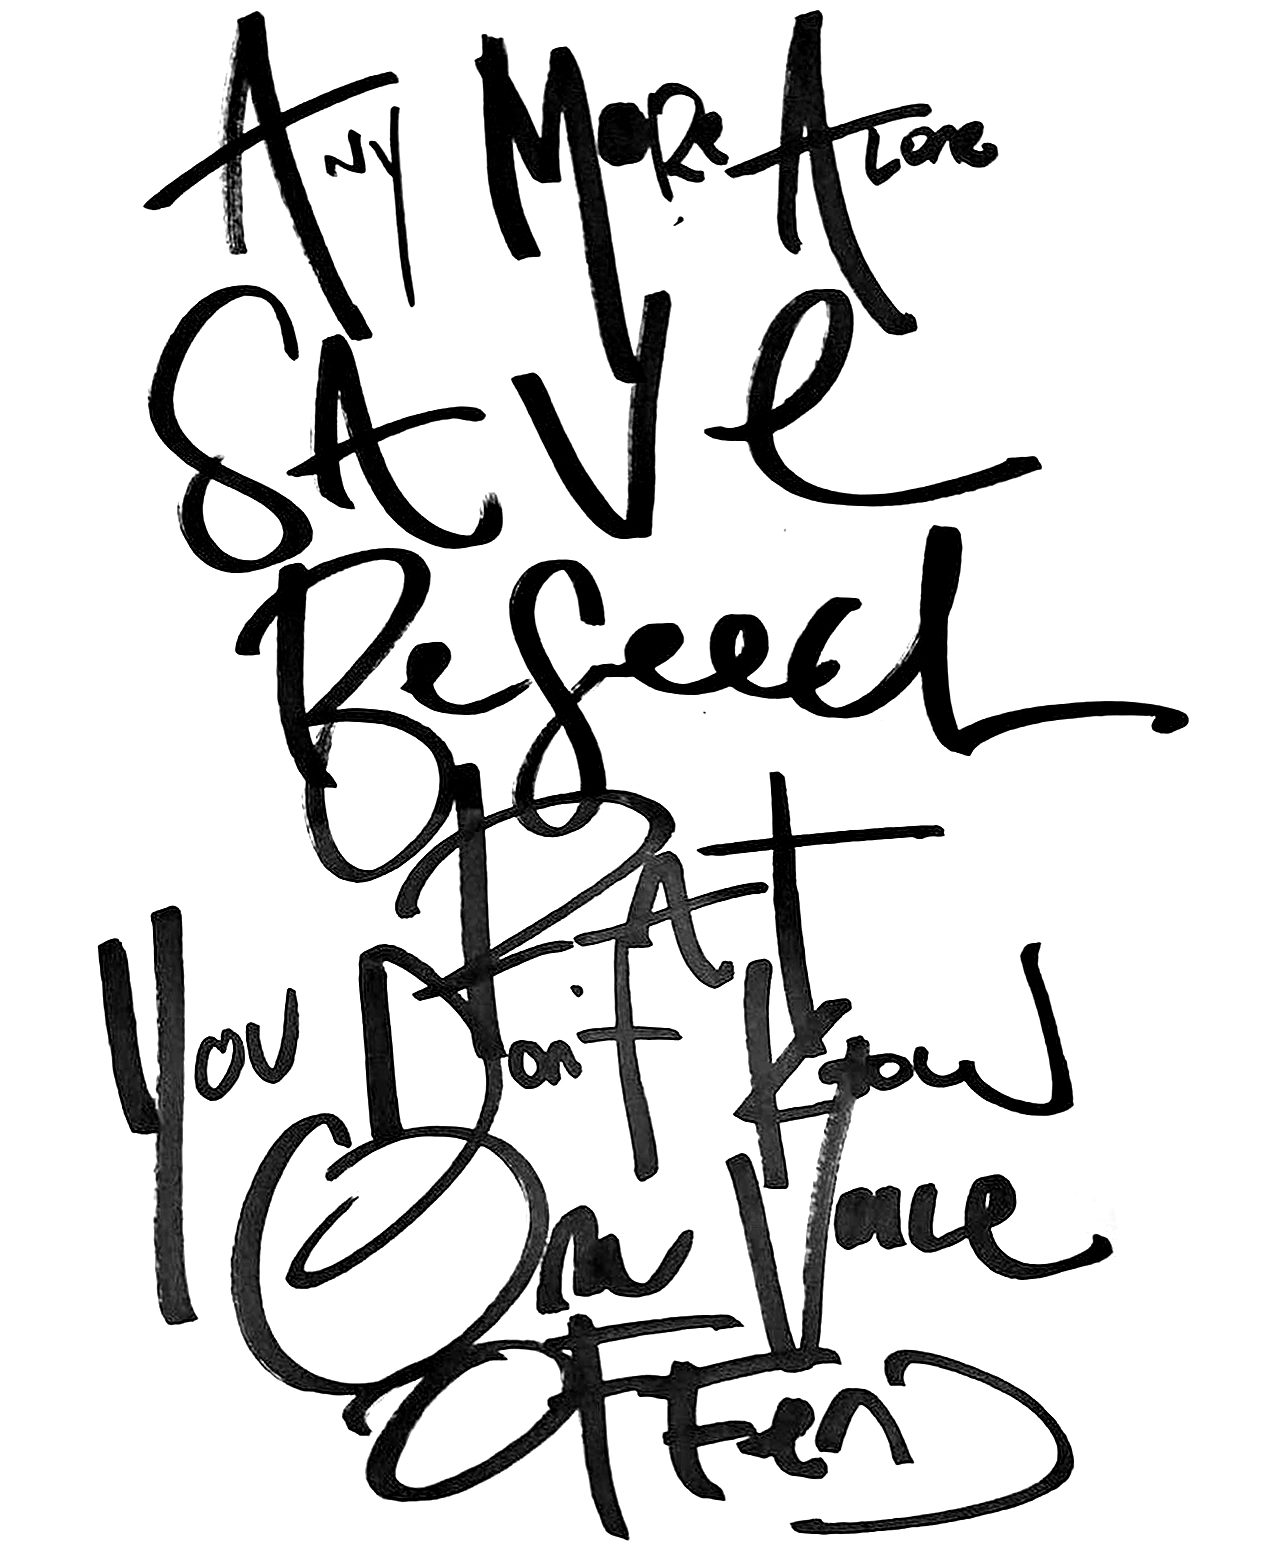 Any More Alone
SAVe
Beseech
RAT
You Don't Know
Our Voice
OFFenD